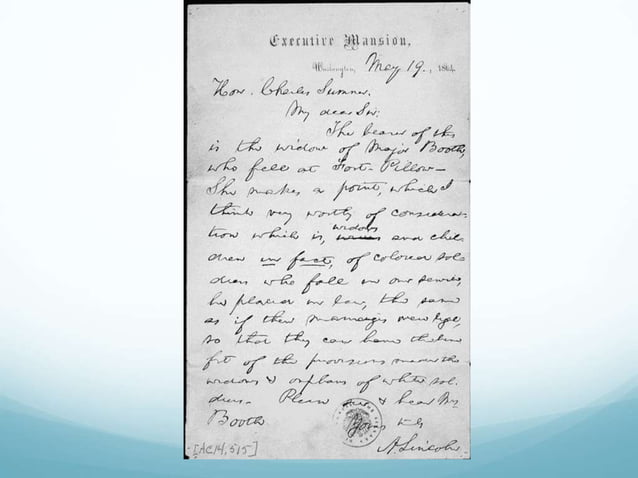 Executive Mansion,
Washington, May 19., 1864.
Hon. Charles Sumner,
My dear Sir:
The bearer of this
is the widow of Major Booth,
who fell at Fort-Pillow—
She makes a point, which I
think very worthy of considera-
tion which is, widows and chil-
dren in fact, of colored sol-
diers who fall in our service,
be placed in law, the same
as if their marriages were legal,
so that they can have the bene-
fit of the provisions made the
widows & orphans of white sol-
diers. Please see & hear Mrs
Booth
Yours truly
A. Lincoln
[AC14,515]